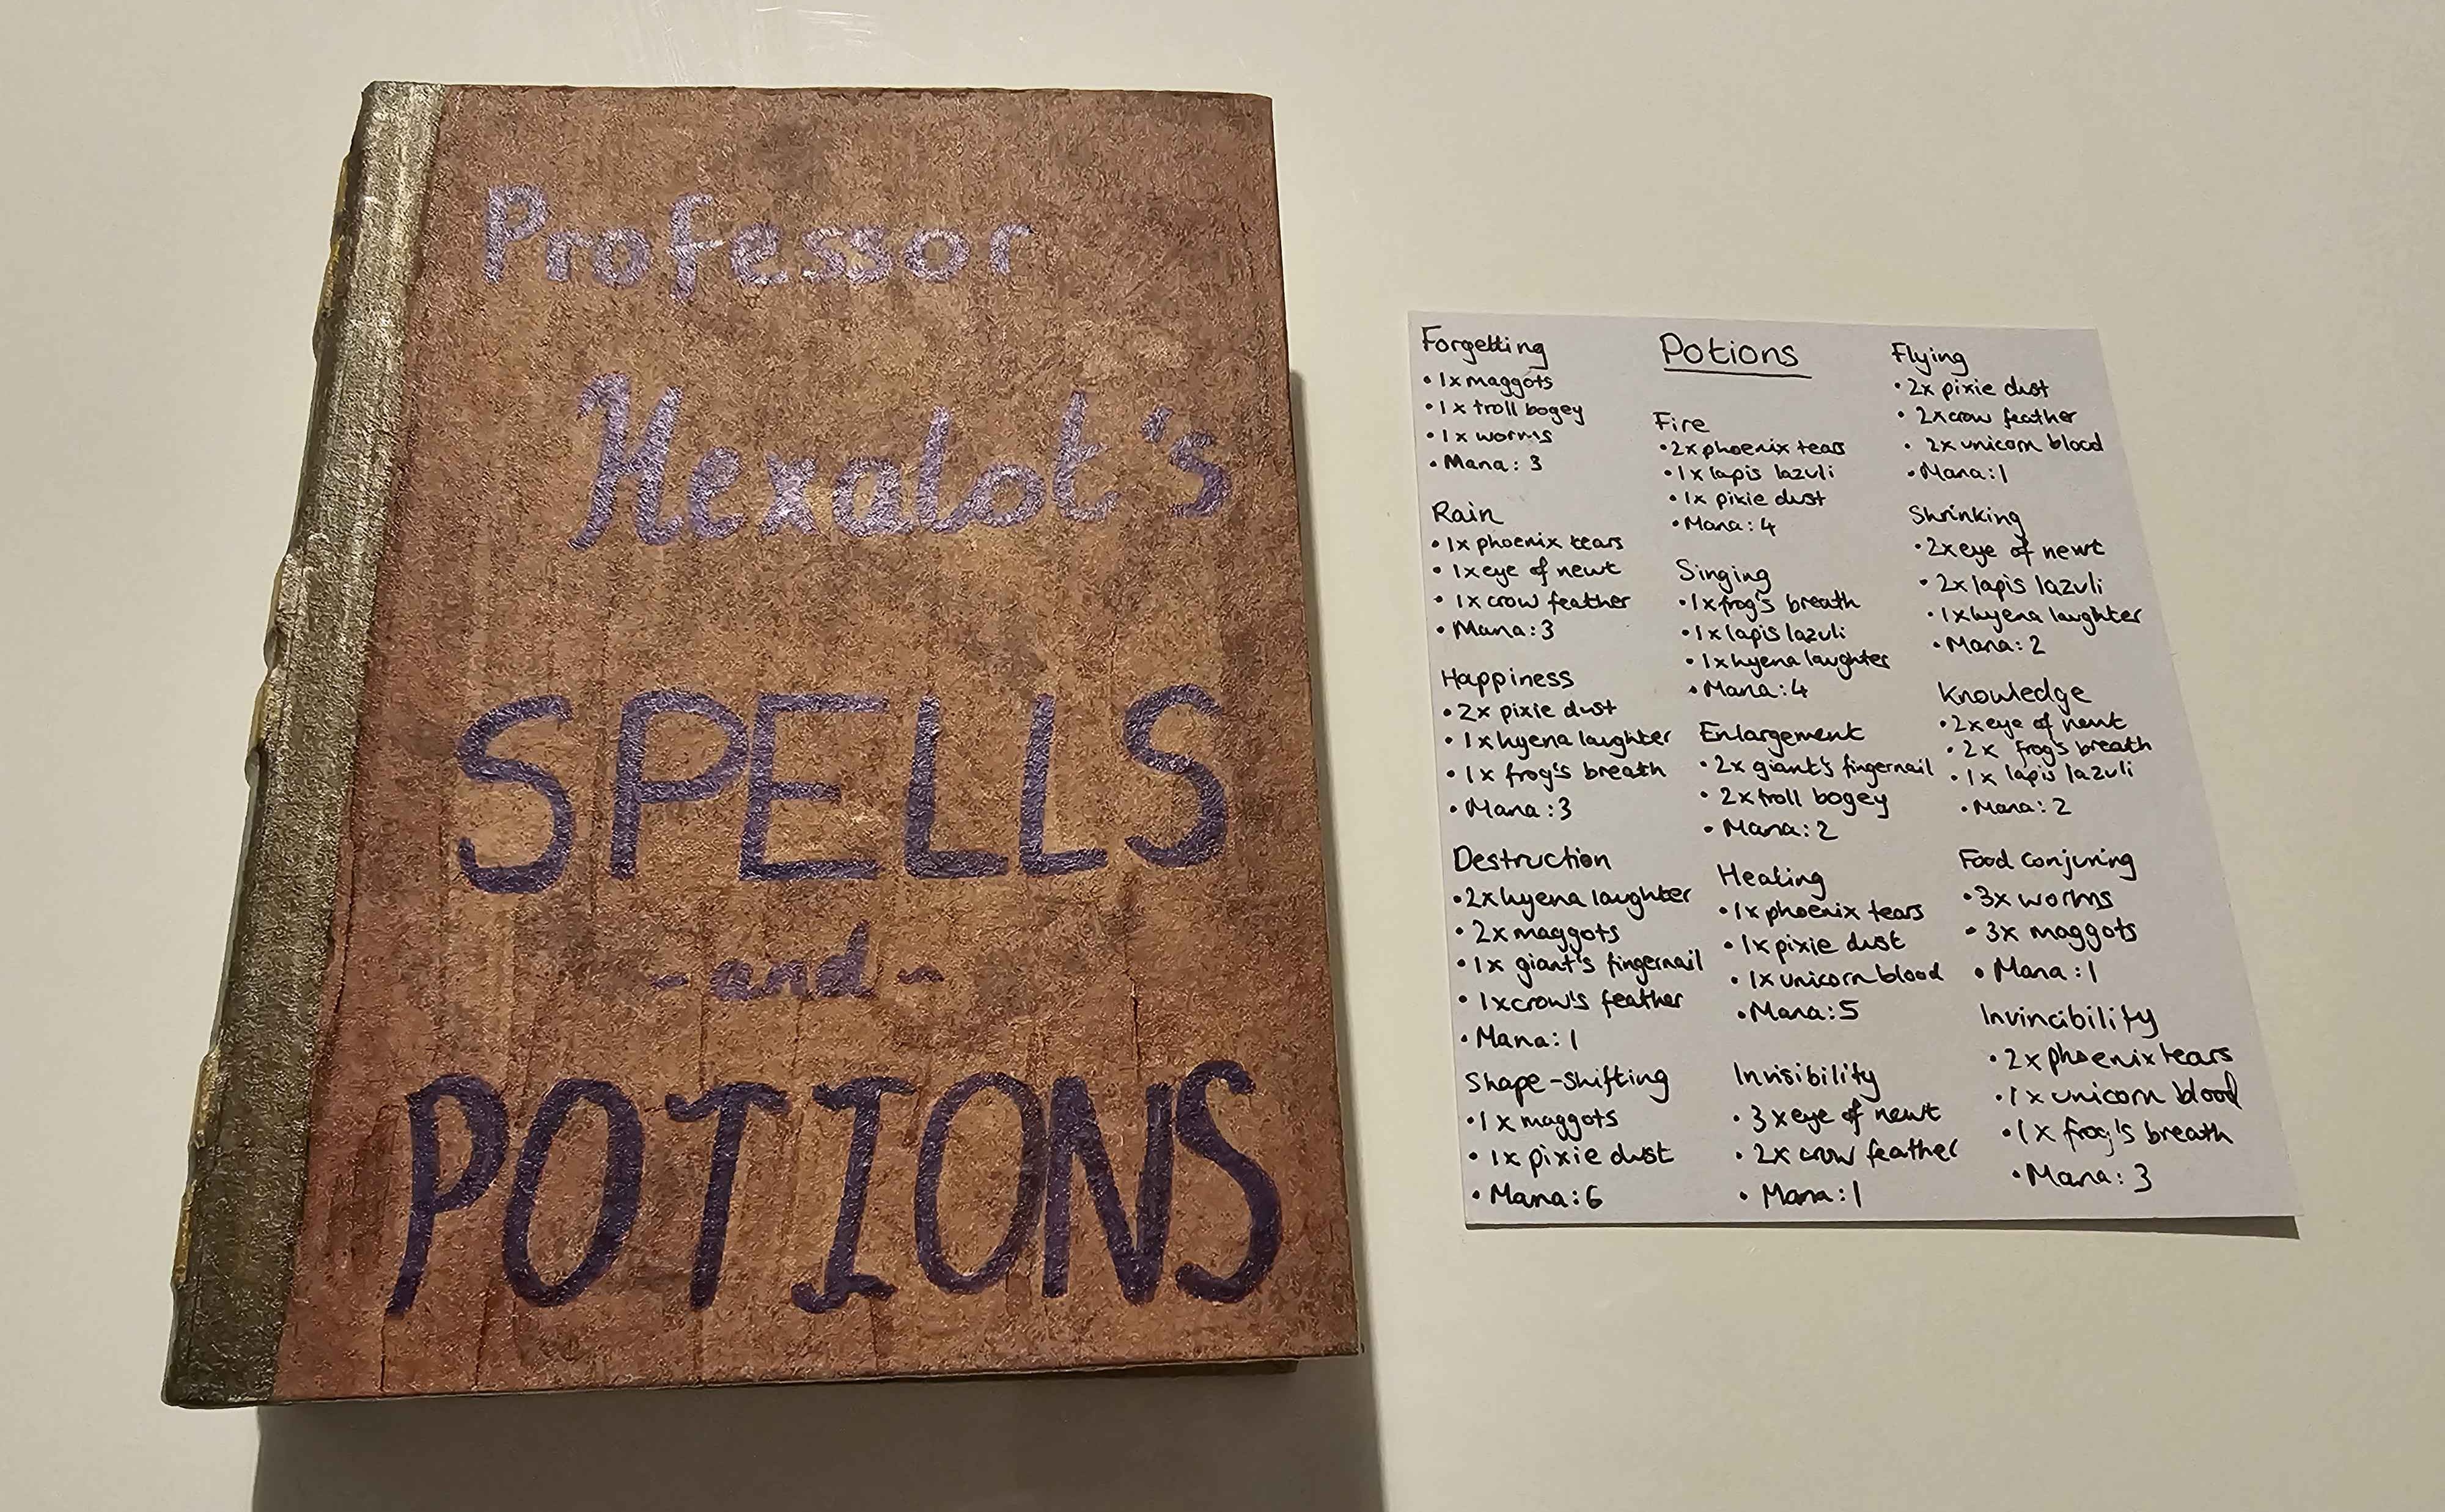 Professor
Hexalot's
SPELLS
-and-
POTIONS
Potions
Forgetting
• 1x maggots
• 1x troll bogey
• 1x worms
• Mana: 3
Rain
• 1x phoenix tears
• 1x eye of newt
• 1x crow feather
• Mana: 3
Happiness
• 2x pixie dust
• 1x hyena laughter
• 1x frog's breath
• Mana: 3
Destruction
• 2x hyena laughter
• 2x maggots
• 1x giant's fingernail
• 1x crow's feather
• Mana: 1
Shape-shifting
• 1x maggots
• 1x pixie dust
• Mana: 6
Fire
• 2x phoenix tears
• 1x lapis lazuli
• 1x pixie dust
• Mana: 4
Singing
• 1x frog's breath
• 1x lapis lazuli
• 1x hyena laughter
• Mana: 4
Enlargement
• 2x giant's fingernail
• 2x troll bogey
• Mana: 2
Healing
• 1x phoenix tears
• 1x pixie dust
• 1x unicorn blood
• Mana: 5
Invisibility
• 3x eye of newt
• 2x crow feather
• Mana: 1
Flying
• 2x pixie dust
• 2x crow feather
• 2x unicorn blood
• Mana: 1
Shrinking
• 2x eye of newt
• 2x lapis lazuli
• 1x hyena laughter
• Mana: 2
Knowledge
• 2x eye of newt
• 2x frog's breath
• 1x lapis lazuli
• Mana: 2
Food conjuring
• 3x worms
• 3x maggots
• Mana: 1
Invincibility
• 2x phoenix tears
• 1x unicorn blood
• 1x frog's breath
• Mana: 3